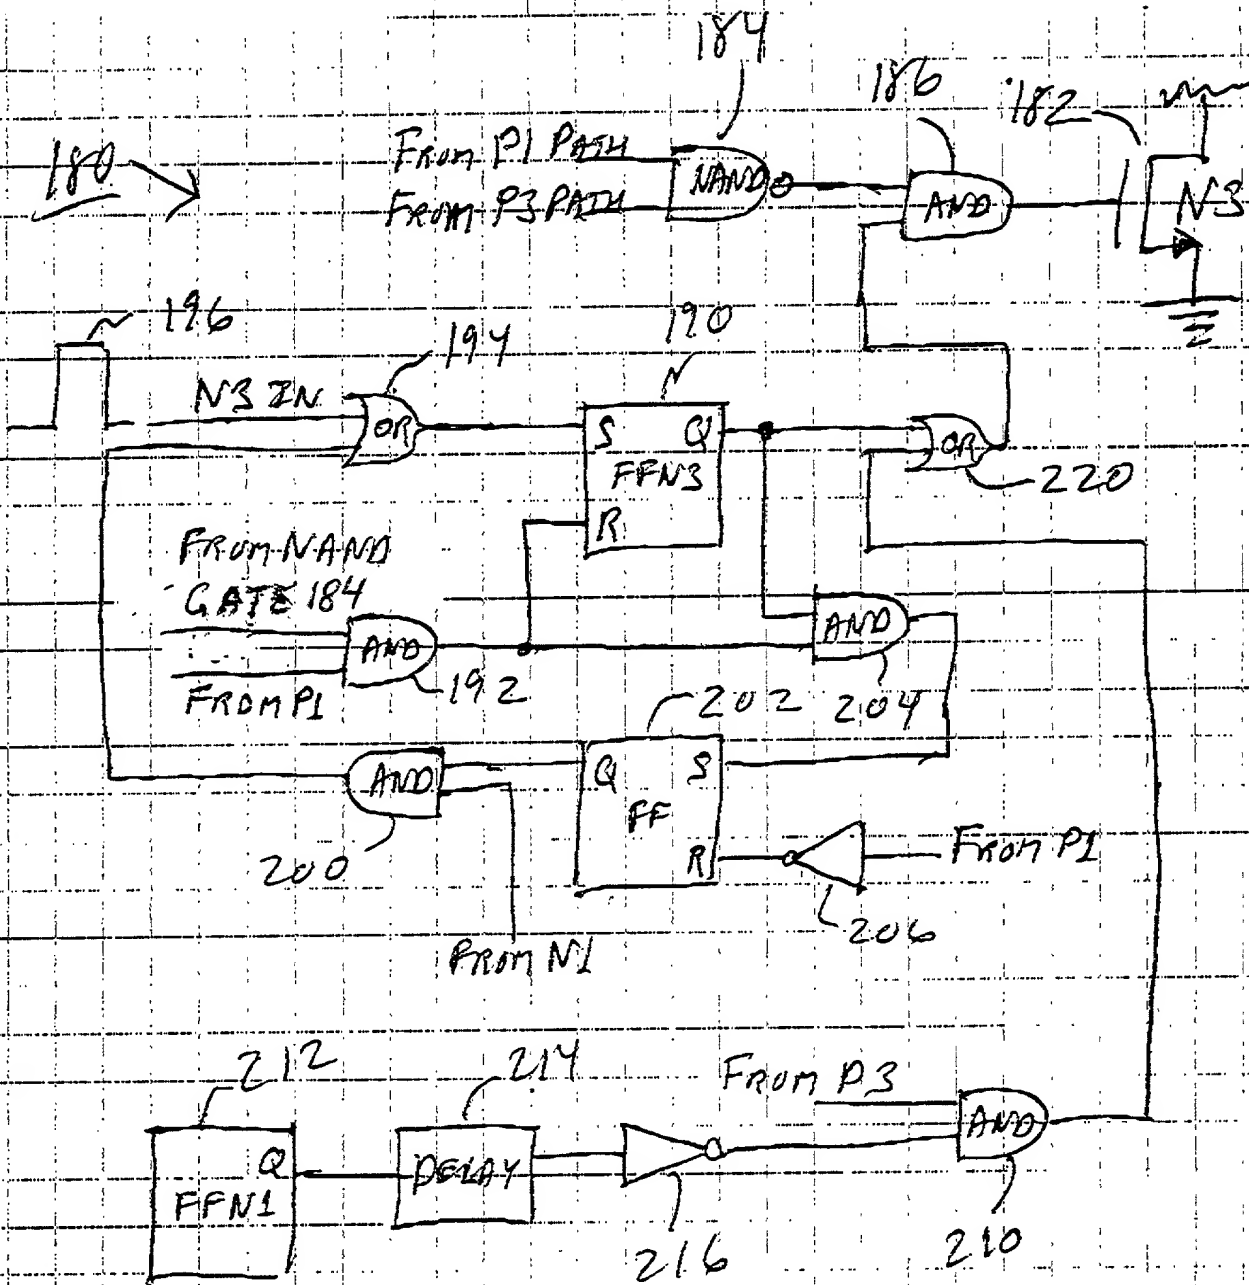 184
186
182
180
FROM P1 PATH
FROM P3 PATH
NAND
AND
N3
196
194
190
N3 IN
OR
S Q
FFN3
R
OR
220
FROM NAND
GATE 184
AND
FROM P1
192
AND
204
202
AND
200
Q S
FF
R
FROM P1
206
FROM N1
212
214
FROM P3
Q
FFN1
DELAY
216
AND
210